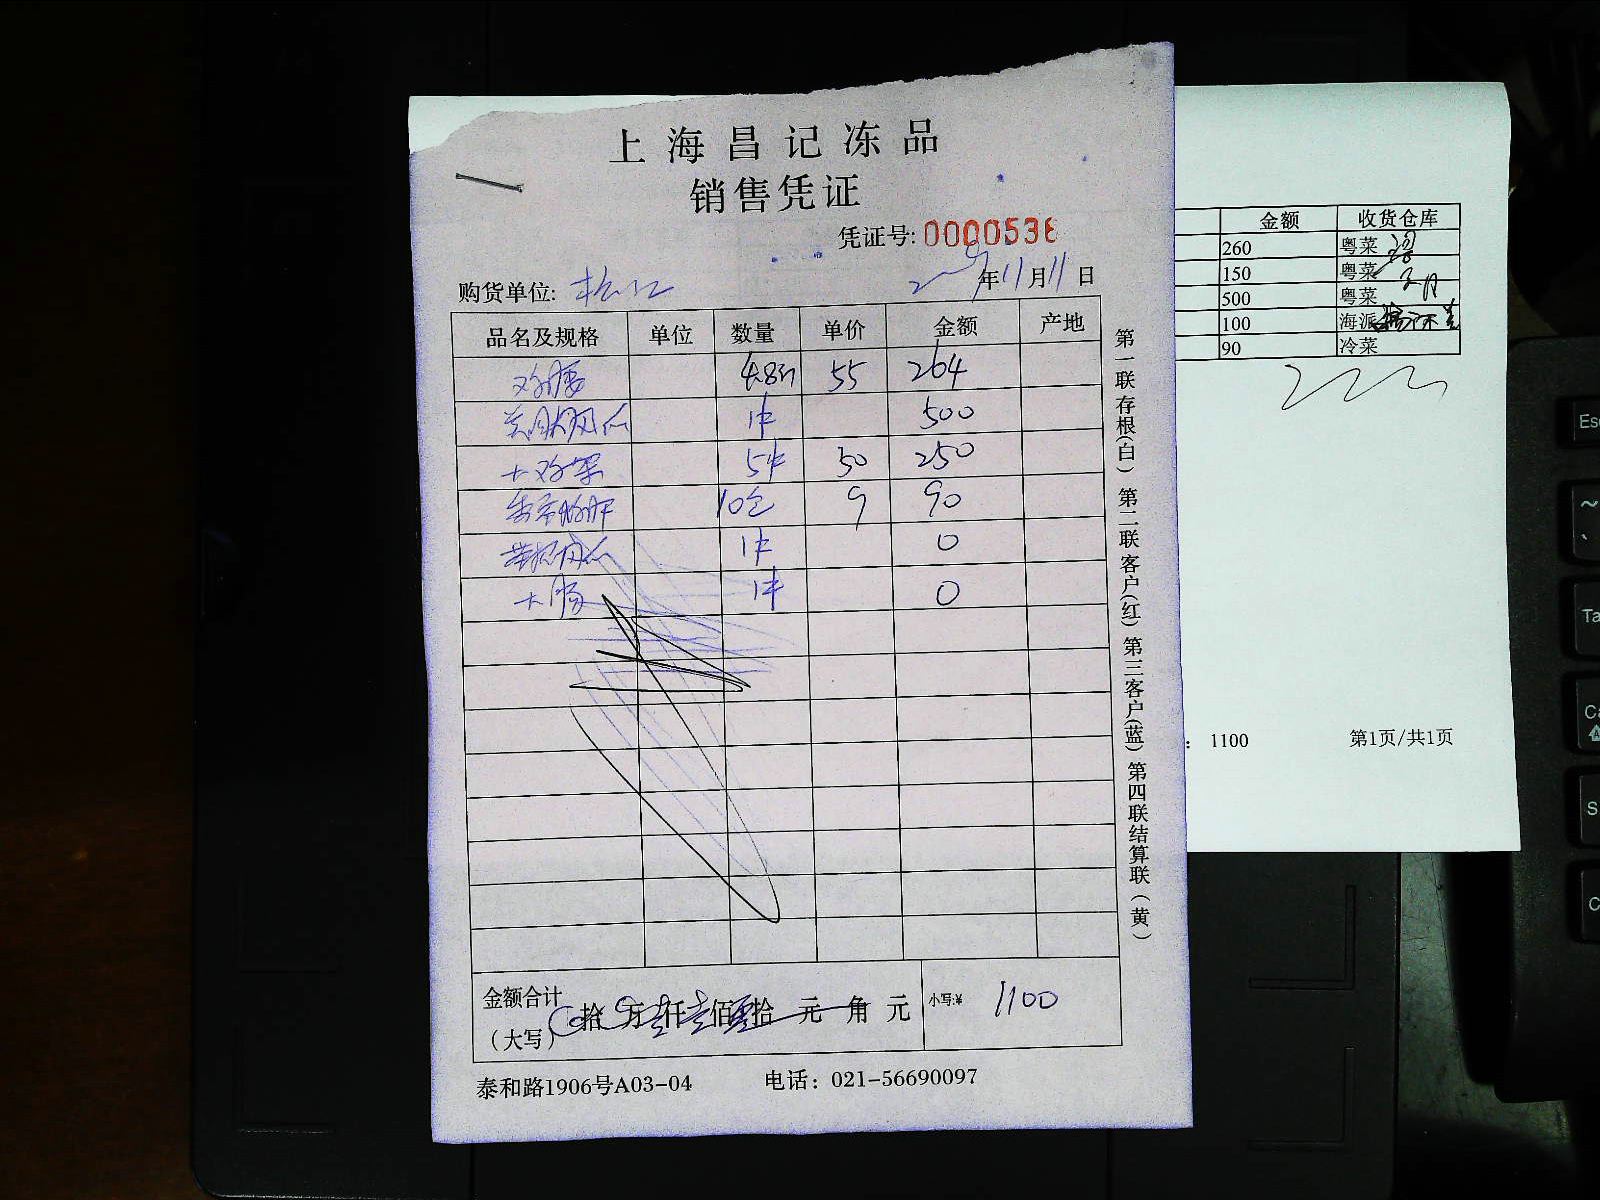 上海昌记冻品
销售凭证
凭证号: 0000538
购货单位: 松江
年11月11日
品名及规格 单位 数量 单价 金额 产地
4.8 55 264
1件 500
大鸡架 5件 50 250
10包 9 90
1件 0
大肠 1件 0
金额合计
(大写) 拾 万 仟 佰 拾 元 角 元 小写:¥ 1100
泰和路1906号A03-04 电话：021-56690097
第一联存根(白) 第二联客户(红) 第三客户(蓝) 第四联结算联（黄）
金额 收货仓库
260 粤菜
150 粤菜
500 粤菜
100 海派
90 冷菜
: 1100 第1页/共1页
Esc
~
S